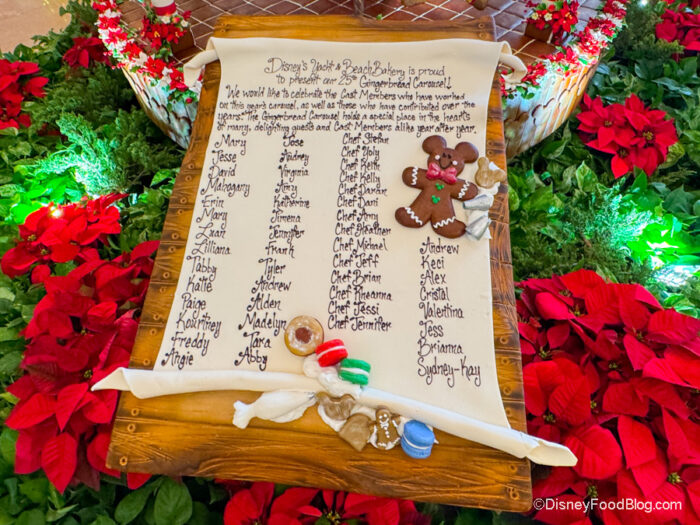 Disney's Yacht & Beach Bakery is proud
to present our 25th Gingerbread Carousel!
We would like to celebrate the Cast Members who have worked
on this year's carousel, as well as those who have contributed over the
years. The Gingerbread Carousel holds a special place in the hearts
of many, delighting guests and Cast Members alike year after year.
Mary
Jesse
David
Mahogany
Erin
Mary
Lilliana
Tabby
Katie
Paige
Kourtney
Freddy
Angie
Jose
Audrey
Virginia
Amy
Katherine
Jimena
Jennifer
Frank
Tyler
Andrew
Alden
Madelyn
Tara
Abby
Chef Stefan
Chef Yoly
Chef Keith
Chef Kelly
Chef Dani
Chef Amy
Chef Heather
Chef Michael
Chef Jeff
Chef Brian
Chef Rheanna
Chef Jessi
Chef Jennifer
Andrew
Keci
Alex
Cristal
Valentina
Jess
Brianna
Sydney-Kay
©DisneyFoodBlog.com